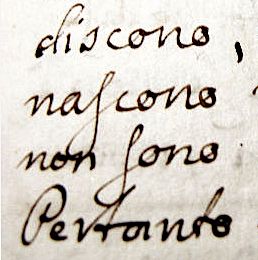 discono,
naſcono
non ſono
Pertanto